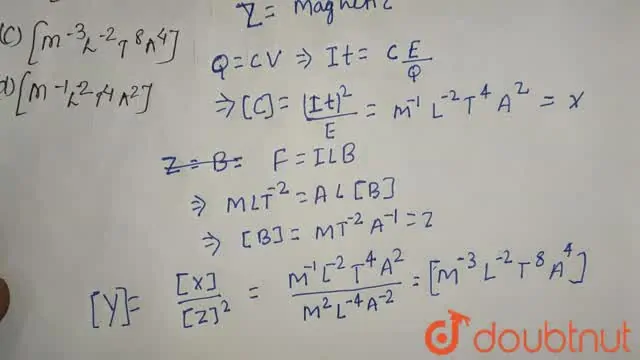 Z = Magnetic
(C) [M⁻³L⁻²T⁸A⁴]
Q = CV ⇒ It = C E/Q
d) [M⁻¹L²T⁴A²]
⇒ [C] = (It)²/E = M⁻¹ L⁻² T⁴ A² = X
Z = B = F = ILB
⇒ MLT⁻² = AL[B]
⇒ [B] = MT⁻²A⁻¹ = Z
[Y] = [X]/[Z]² = M⁻¹L⁻²T⁴A²/M²L⁻⁴A⁻² = [M⁻³L⁻²T⁸A⁴]
doubtnut